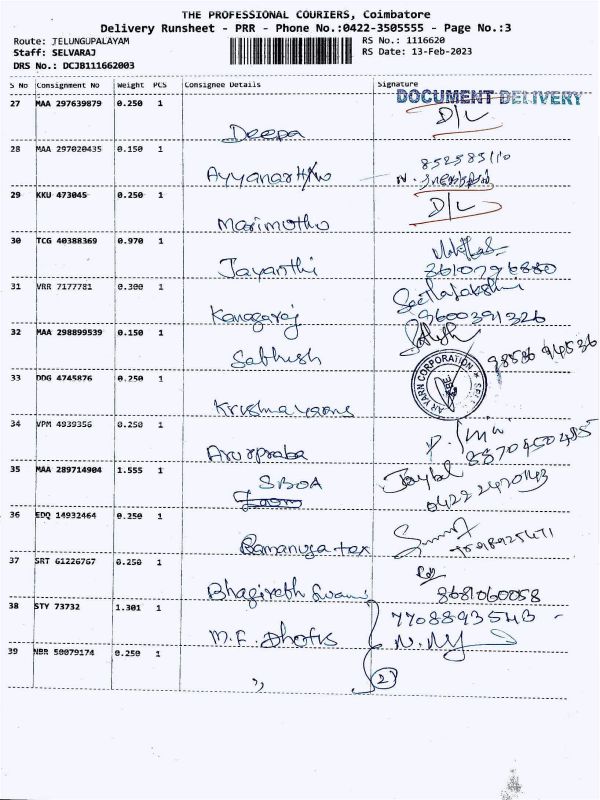 THE PROFESSIONAL COURIERS, Coimbatore
Delivery Runsheet - PRR - Phone No.:0422-3505555 - Page No.:3
Route: TELUNGUPALAYAM RS No.: 1116620
Staff: SELVARAJ RS Date: 13-Feb-2023
DRS No.: DCJB111662003
S No Consignment No Weight PCS Consignee Details Signature
DOCUMENT DELIVERY
27 MAA 297639879 0.250 1 D/L
Deepa
28 MAA 297020435 0.150 1
Ayyanar
29 KKU 473045 0.250 1 D/L
Marimuthu
30 TCG 40388369 0.970 1
Jayanthi
31 VRR 7177781 0.300 1
Kanagaraj 9600391326
32 MAA 298899539 0.150 1
Sathish
33 DDG 4745876 0.250 1 YARN CORPORATION
Krishna yarns
34 VPM 4939356 0.250 1
Arurpraba
35 MAA 289714904 1.555 1 SBOA
0422 2470143
36 EDQ 14932464 0.250 1
Ramanuja tex
37 SRT 61226767 0.250 1
Bhagirath Swami 8681060058
38 STY 73732 1.301 1 7708893543
M.F. Dhotis
39 NBR 50079174 0.250 1
,, 2